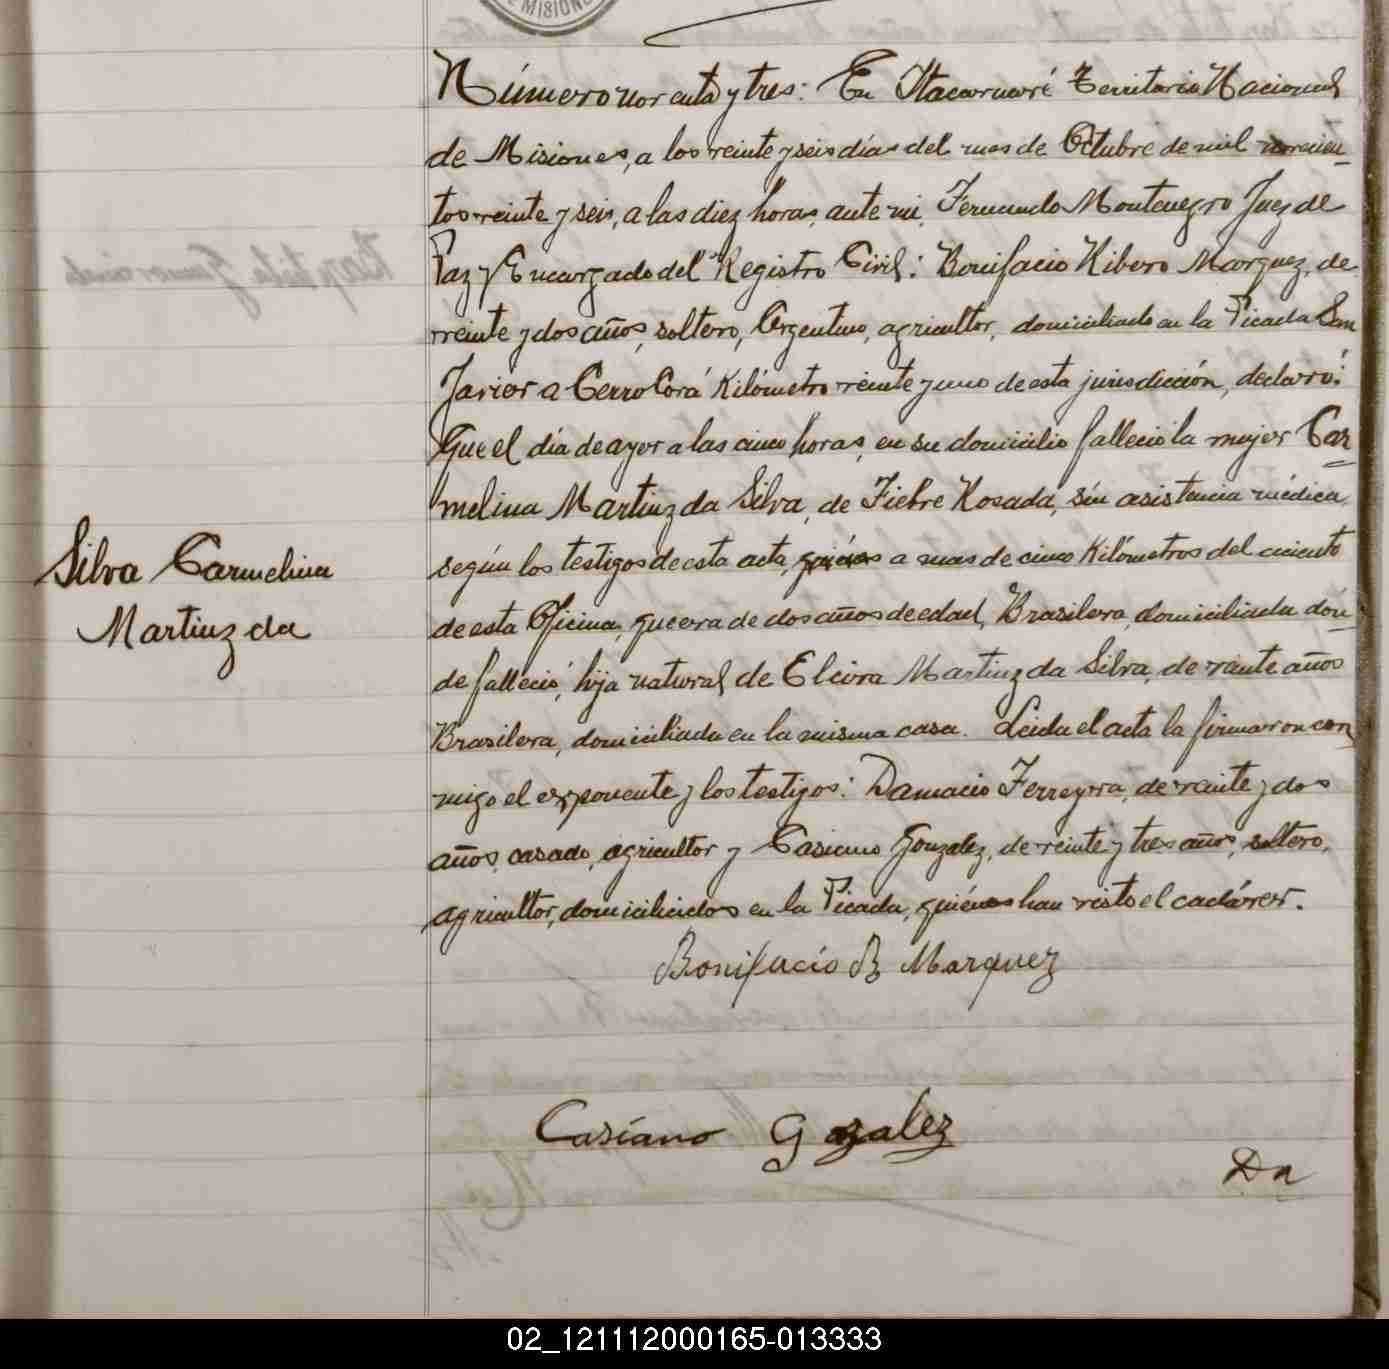 DE MISIONES
Número noventa y tres: En Itacaruaré Territorio Nacional
de Misiones, a los veinte y seis días del mes de Octubre de mil novecien_
tos veinte y seis, a las diez horas, ante mi, Fernando Montenegro Juez de
Paz y Encargado del Registro Civil: Bonifacio Ribero Marquez, de
veinte y dos años, soltero, Argentino, agricultor, domiciliado en la Picada San
Javier a Cerro Corá Kilómetro veinte y uno de esta jurisdicción, declaró:
Que el día de ayer a las cinco horas, en su domicilio falleció la mujer Car
melina Martinz da Silva, de Fiebre Rosada, sin asistencia médica,
según los testigos de esta acta, a mas de cinco Kilómetros del asiento
de esta Oficina, que era de dos años de edad, Brasilera, domiciliada dón_
de falleció, hija natural de Elvira Martinz da Silva, de veinte años
Brasilera, domiciliada en la misma casa. Leida el acta la firmaron con
migo el exponente y los testigos: Damacio Ferreyra, de veinte y dos
años, casado, agricultor y Casiano Gonzalez, de veinte y tres años, soltero,
agricultor, domiciliados en la Picada, quiénes han visto el cadáver.
Silva Carmelina
Martinz da
Bonifacio R Marquez
Casiano Gozalez
Da
02_121112000165-013333